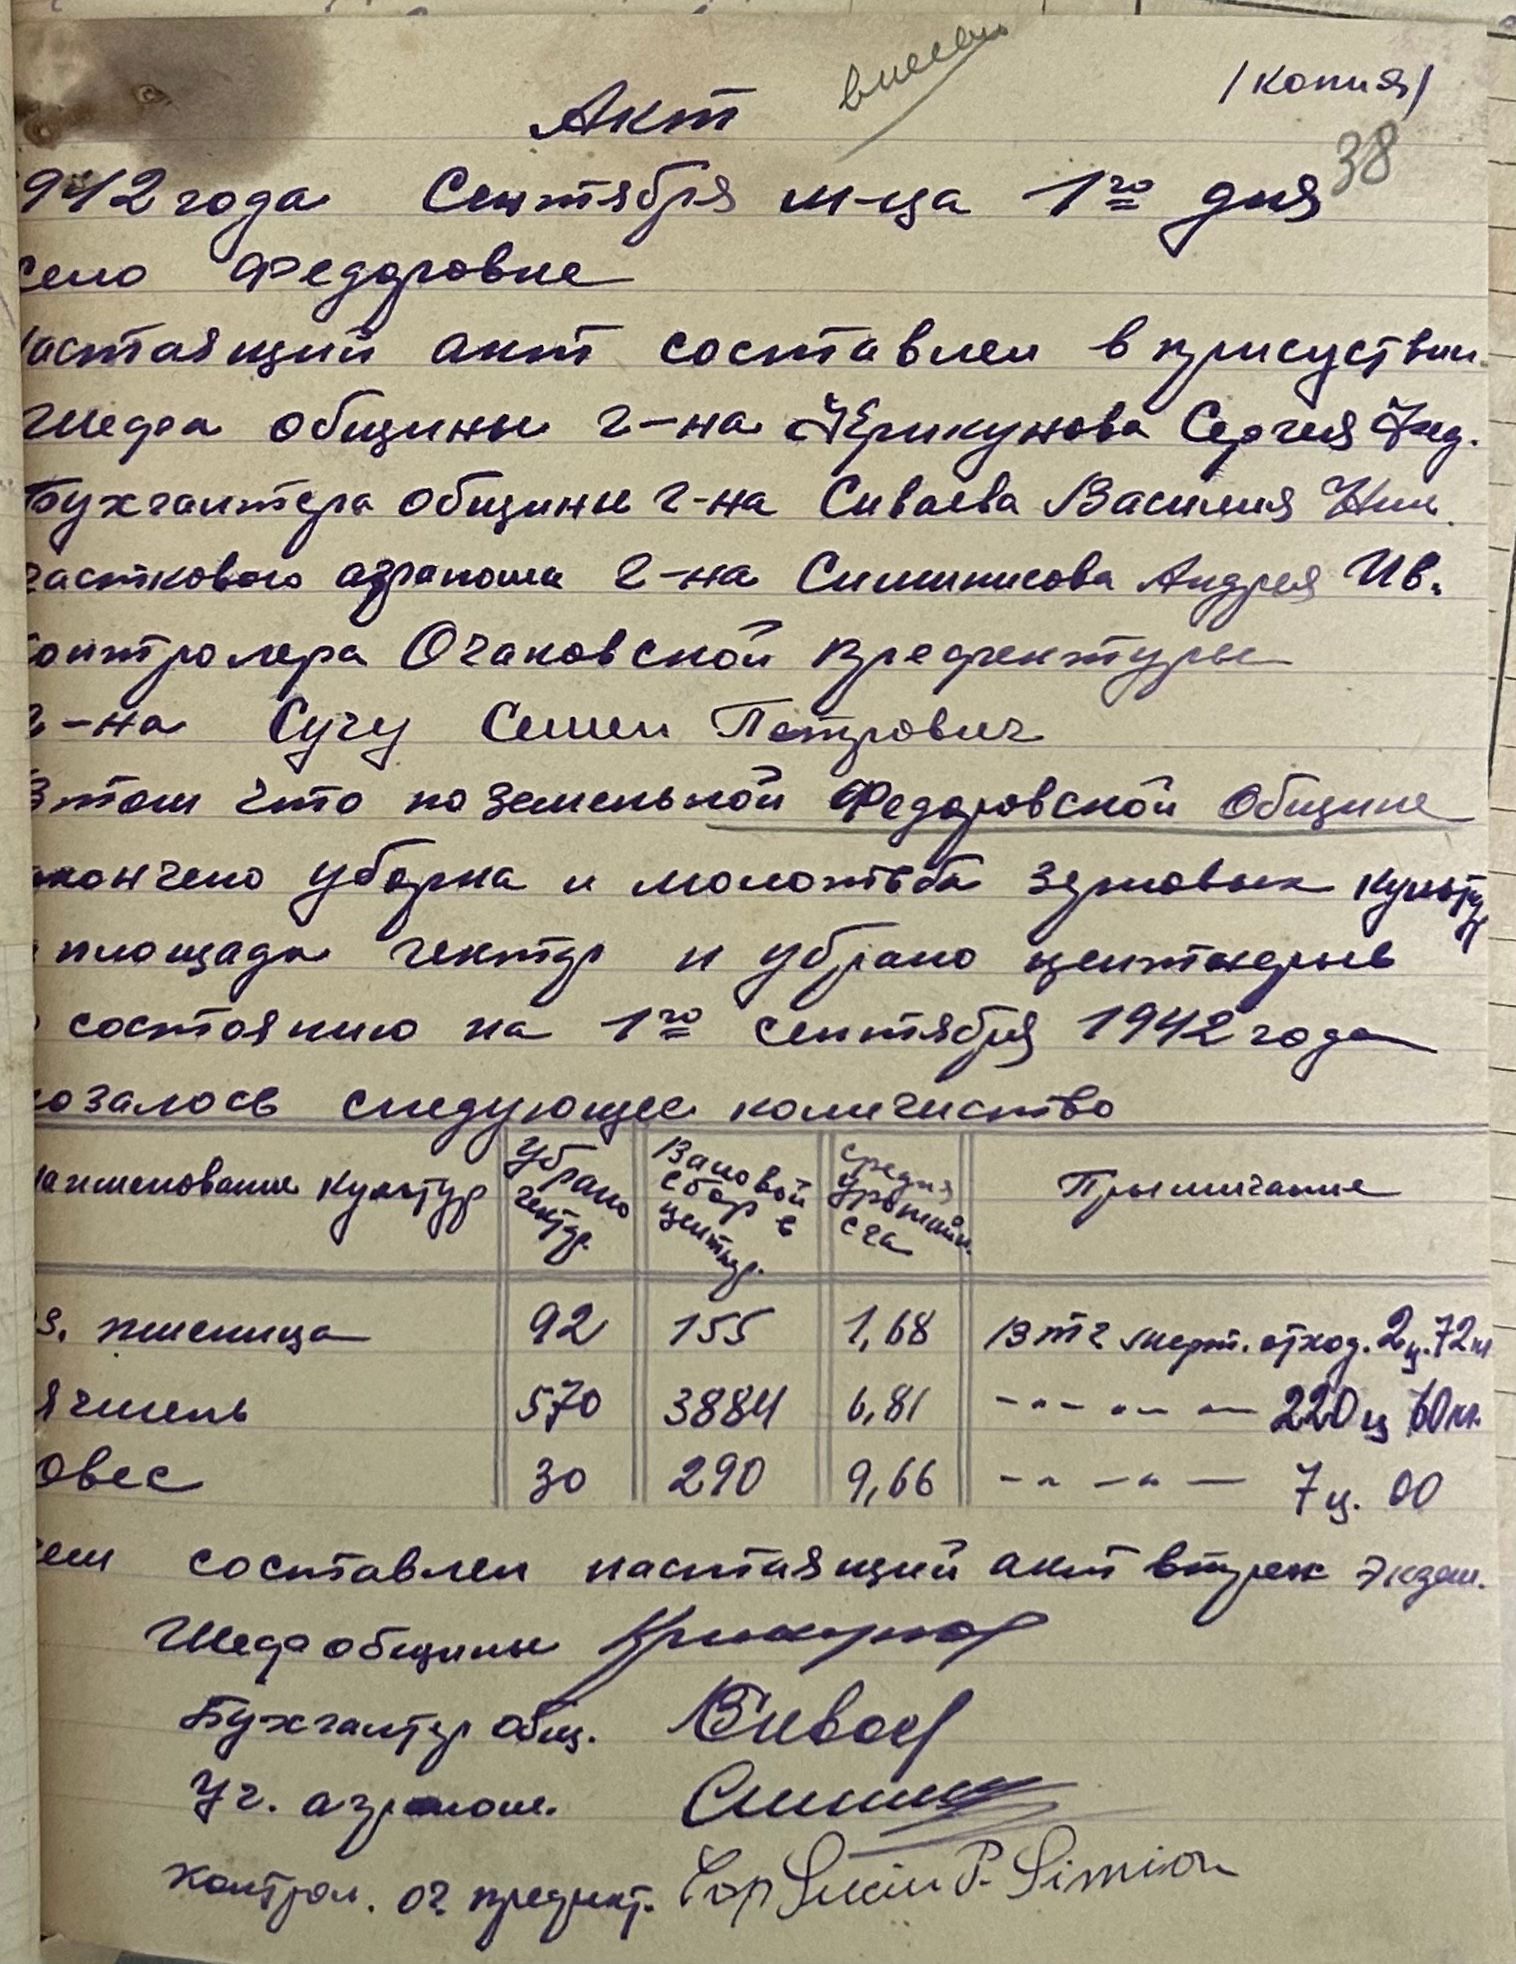 /копия/
Акт
38
942 года Сентября м-ца 1го дня
село Федоровке
настаящий акт составлен в присуствии
Шефа общины г-на Крикунова Сергея Фед.
Бухгалтера общины г-на Сиваева Василия Ник.
часткового агранома г-на Андрея Ив.
контролера Очаковской префектуры
г-на Сучу Семен Петрович
В том что по земельной Федоровской Общине
акончено уборка и молотьба зерновых культур
площади гектар и убрано центнеров
состоянию на 1го сентября 1942 года
козалось следующее количиство
наименование культур
Убрано гектар.
Валовой сбор в центнер.
средня урожайн. с га
Примичание
з. пшеница 92 155 1,68 В тч мерт. отход. 2ц. 72кг
ячмень 570 3884 6,81 -"- -"- 220ц 60кг.
Овес 30 290 9,66 -"- -"- 7ц. 00
чем составлен настаящий акт в трех экзем.
Шеф общины Крикунов
Бухгалтер общ. Сиваев
Уч. аграном.
контрол. оч. префект. P. Simion